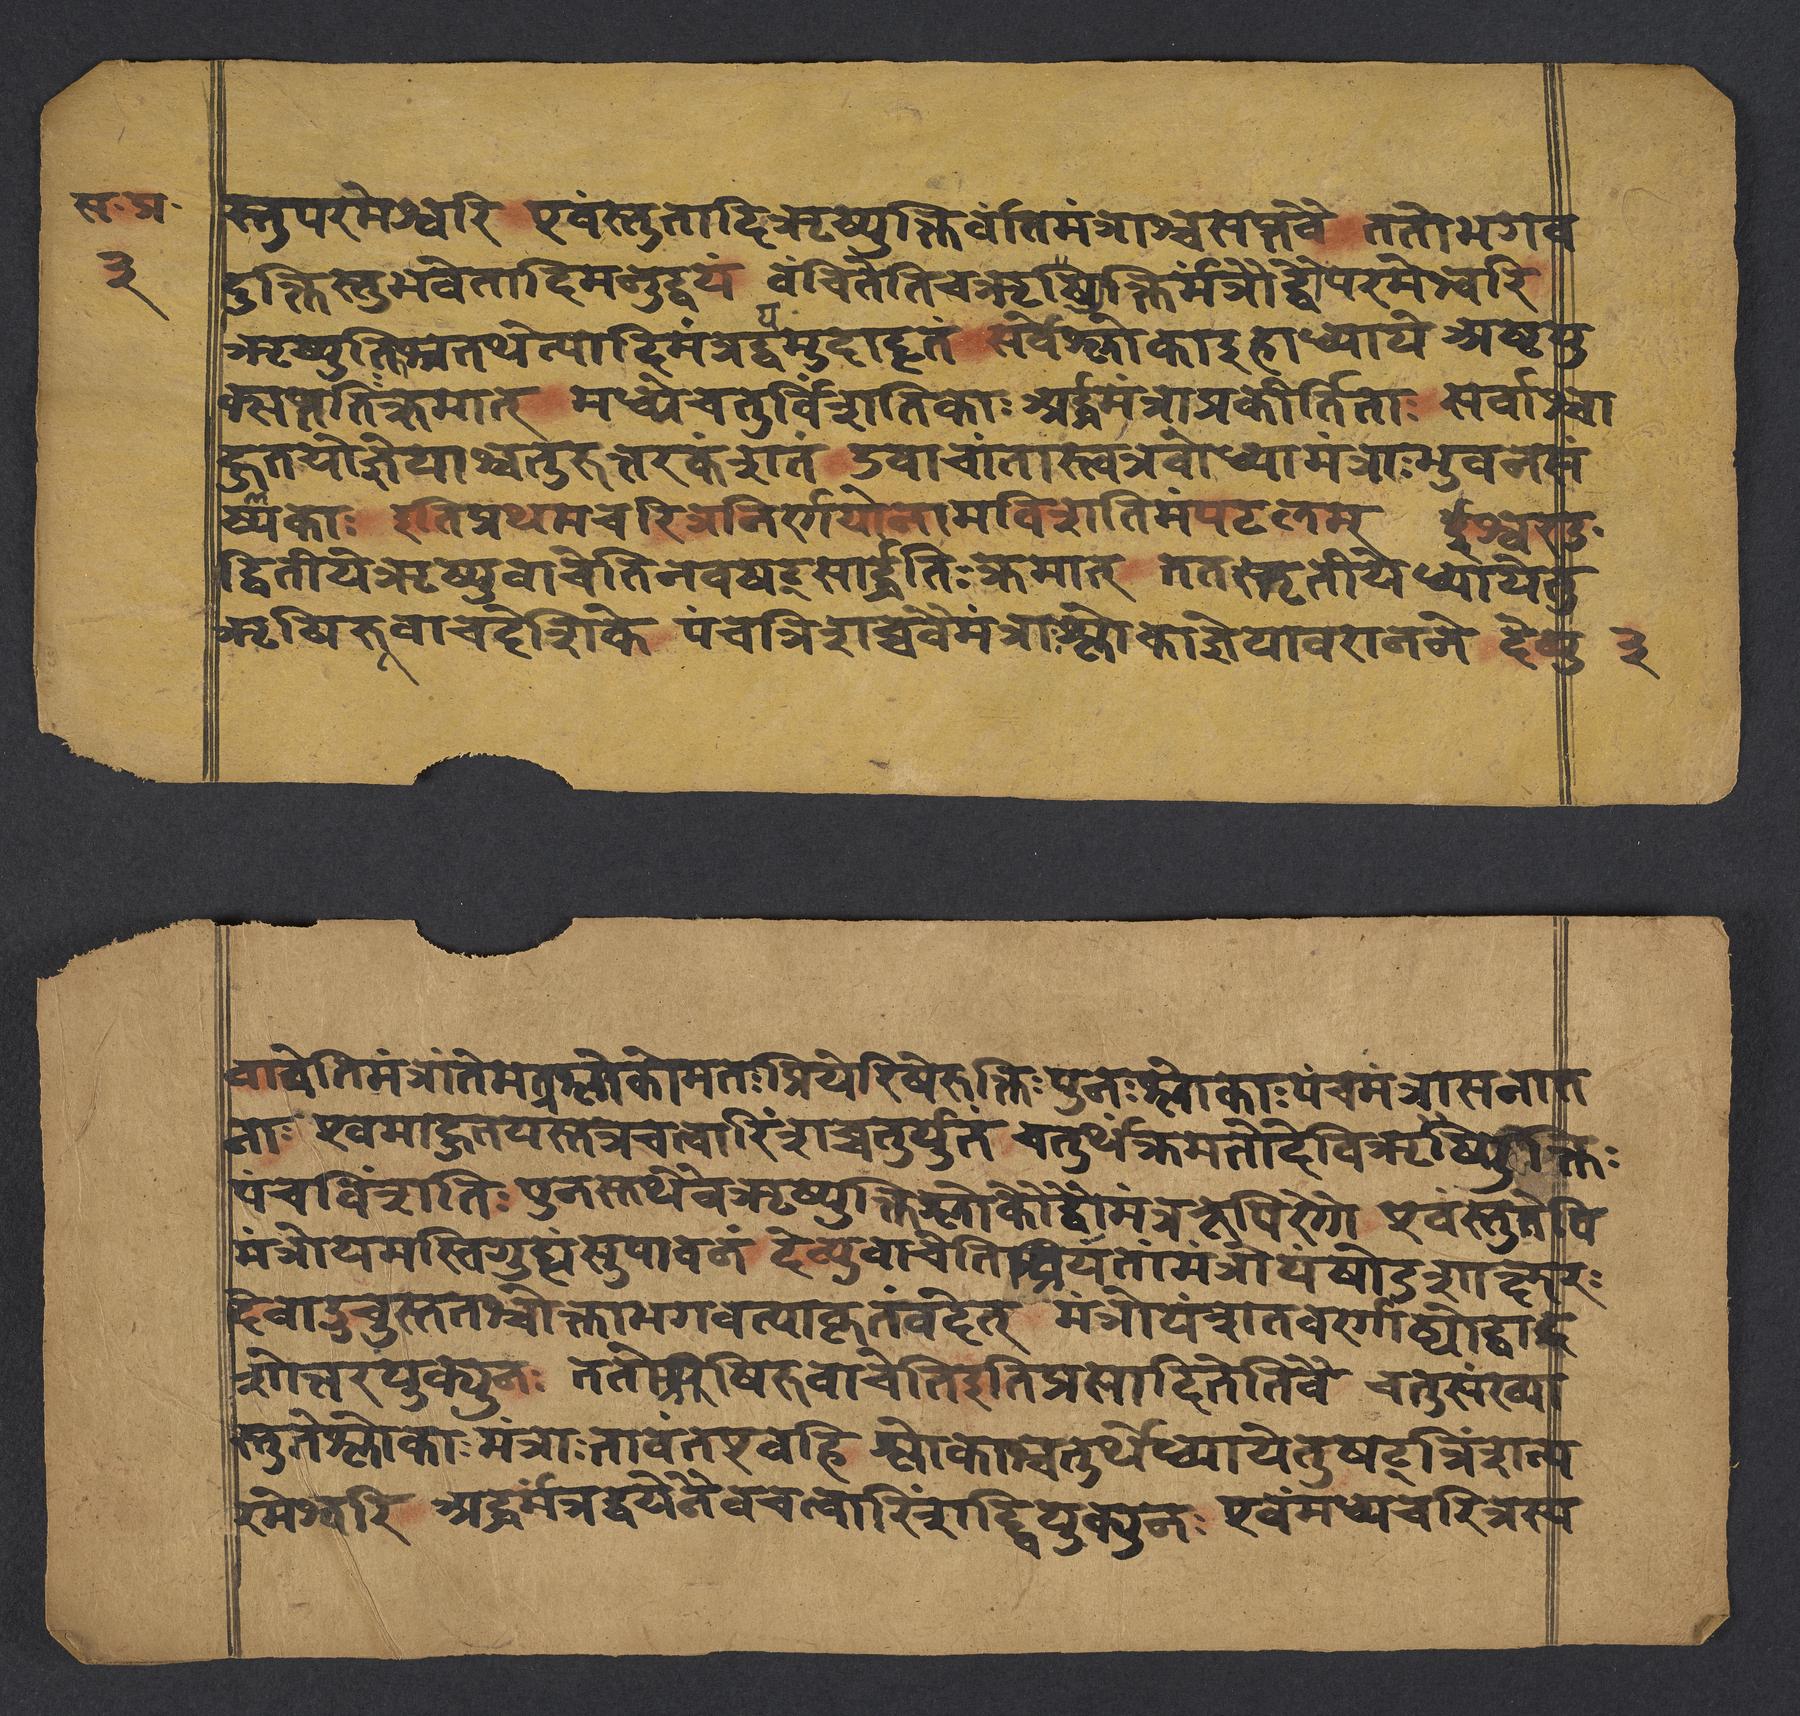 स॰प्र॰
३
स्तुपरमेश्वरि एवंस्तुतादिऋष्युक्तिवंतिमंत्राश्चसप्तवै ततोभगव
दुक्तिस्तुभवेतादिमनुद्वयं वंचितेतिचऋष्युक्तिर्मंत्रौद्वौपरमेश्वरि
ऋष्युक्तिश्चतथेत्यादिमंत्रद्वयमुदाहृतं सर्वेश्लोकाइहाध्याये अष्टयु
क्सप्ततिंक्रमात् मध्येचतुर्विंशतिकाः अर्द्धमंत्राप्रकीर्तिताः सर्वाश्चा
हुतयोज्ञेयाश्चतुरुत्तरकंशतं उवाचांतास्त्वत्रबोध्यामंत्राःभुवनसं
ख्यकाः इतिप्रथमचरित्रनिर्णयोनामविंशतिमंपटलम् ईश्वरउ॰
द्वितीयेऋष्युवाचेतिनवषट्सार्द्धतिःक्रमात् ततस्तृतीयेध्यायेतु
ऋषिरुवाचदेशिके पंचत्रिशच्चवैमंत्राःश्लोकाज्ञेयावरानने देव्यु
३
वाचेतिमंत्रांतेमतश्लोकोमतःप्रियेरिषेरुक्तिः पुनःश्लोकाःपंचमंत्रासनात
नाः एवमाहुतयस्तत्रचत्वारिंशच्चतुर्युतं चतुर्थेक्रमतोदेविऋष्युक्तिः
पंचविंशतिः पुनस्तथैवऋष्युक्तिश्लोकौद्वौमंत्ररूपिणो एवंस्तुतेति
मंत्रोयमस्तिगुह्यंसुपावनं देव्युवाचेतिव्रियतांमंत्रोयंषोडशाक्षरः
देवाऊचुस्ततश्चोक्ताभगवत्याकृतंवदेत् मंत्रोयंशतवर्णाढ्योद्वाद
शोत्तरंयुक्पुनः ततोऋषिरुवाचेतिइतिप्रसादितेतिवै चतुसंख्या
स्तुतेश्लोकाःमंत्राःतावंतएवहि श्लोकाश्चतुर्थेध्यायेतुषट्त्रिंशत्प
रमेश्वरि अर्द्धमंत्रद्वयेनैवचत्वारिंशद्द्वियुक्पुनः एवंमध्यचरित्रस्य